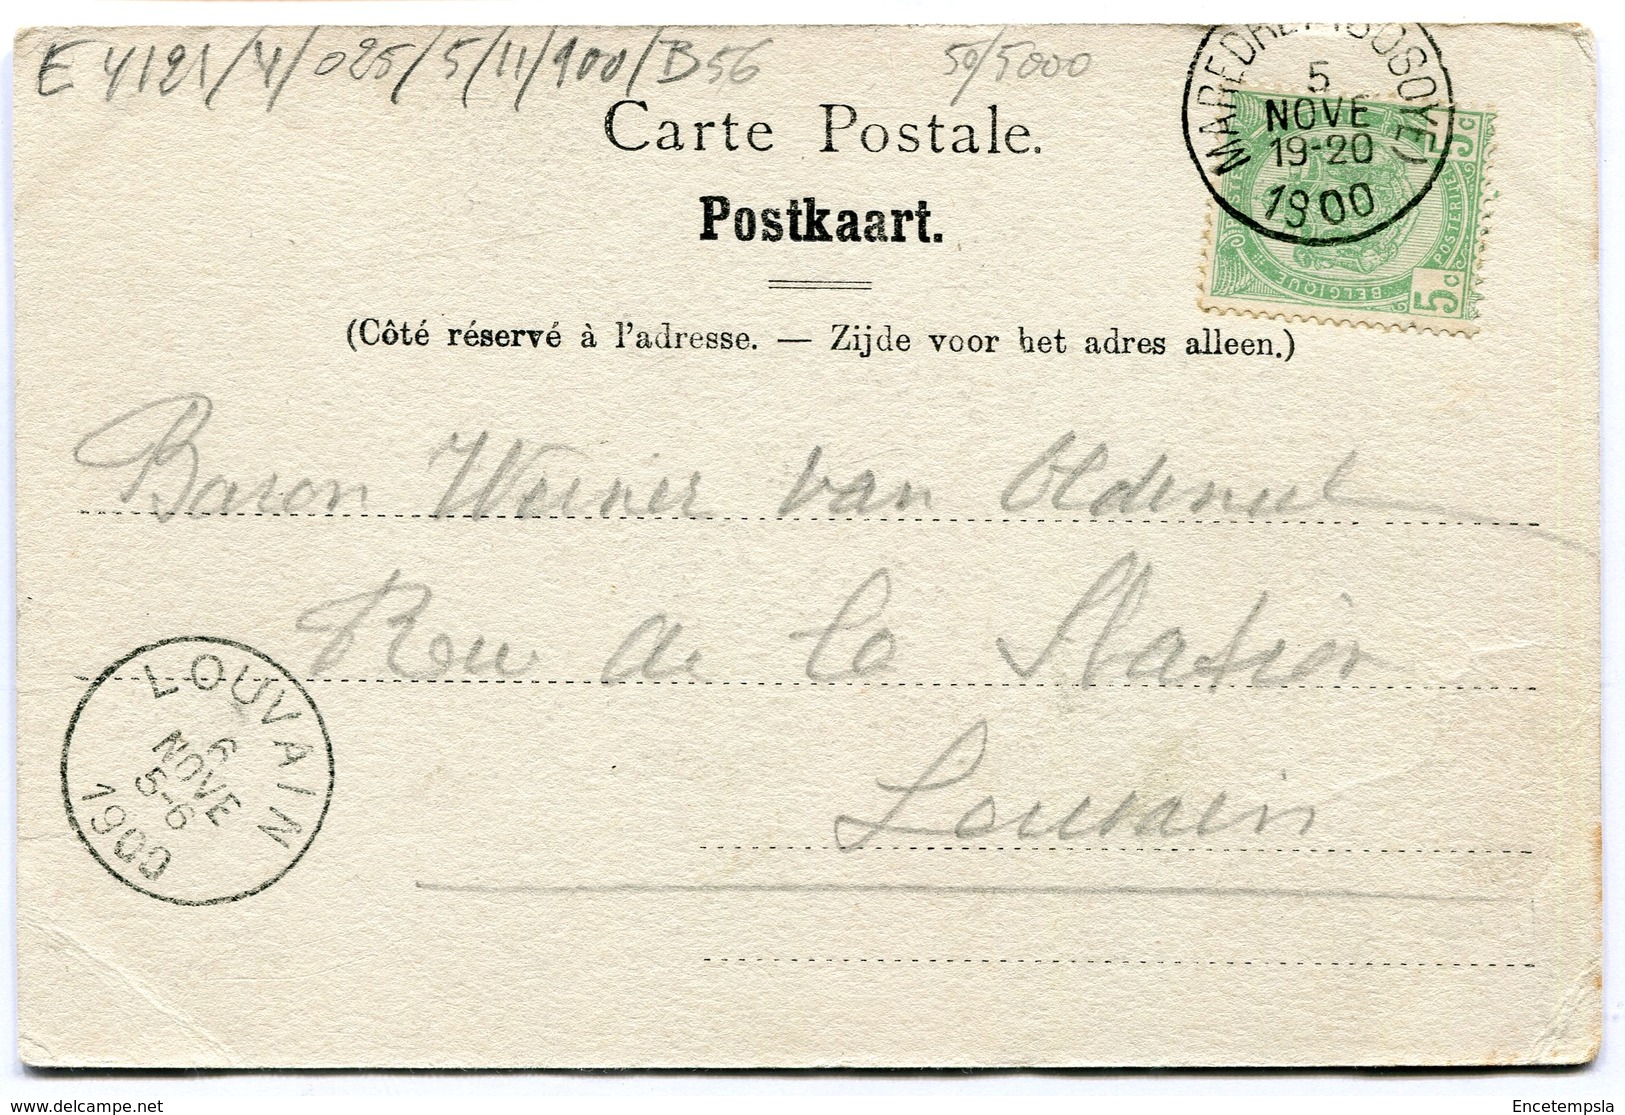 E 4121/4/025/5/11/900/B56 50/5000
Carte Postale.
Postkaart.
(Côté réservé à l'adresse. — Zijde voor het adres alleen.)
5
NOVE
19-20
1900
5c 5c
POSTERIJEN
BELGIQUE
Baron Werner van
Rue de la Station
Louvain
LOUVAIN
6
NOVE
5-6
1900
www.delcampe.net
Encetempsla